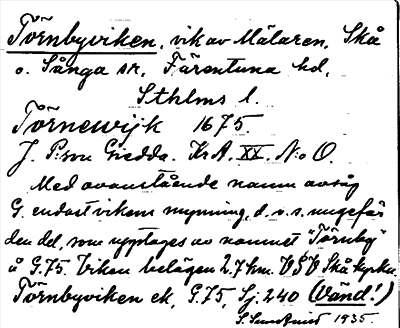 Törnbyviken, vik av Mälaren, Skå
o. Sånga sn, Färentuna hd,
Sthlms l.
Törnewijk 1675
J. P:son Giedda. KrA. XX. N:o O.
Med ovanstående namn avsåg
G. endast vikens mynning, d.v.s. ungefär
den del, som upptages av namnet "Törnby"
å G.75. Viken belägen 2.7 km. VSV Skå kyrka.
Törnbyviken ek, G.75, Sj. 240 (Vänd!)
S. 1935.